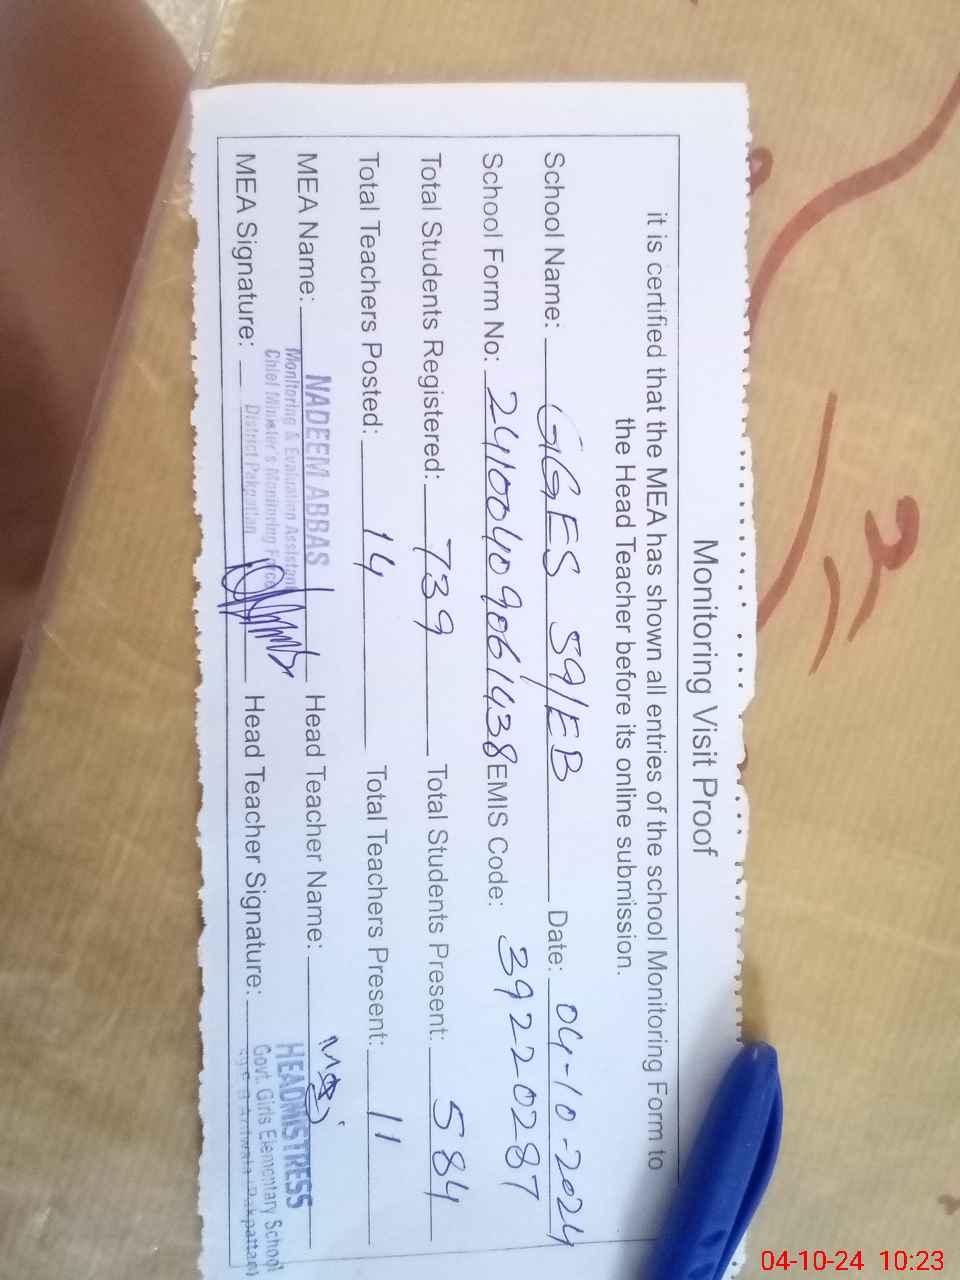 Monitoring Visit Proof
it is certified that the MEA has shown all entries of the school Monitoring Form to
the Head Teacher before its online submission.
School Name: GGES 59/EB Date: 04-10-2024
School Form No: 24100409061438 EMIS Code: 39220287
Total Students Registered: 739 Total Students Present: 584
Total Teachers Posted: 14 Total Teachers Present: 11
MEA Name: NADEEM ABBAS Head Teacher Name:
Monitoring & Evaluation Assistant
Chief Minister's Monitoring Force
District Pakpattan
MEA Signature: Head Teacher Signature:
HEADMISTRESS
Govt. Girls Elementary School
04-10-24 10:23